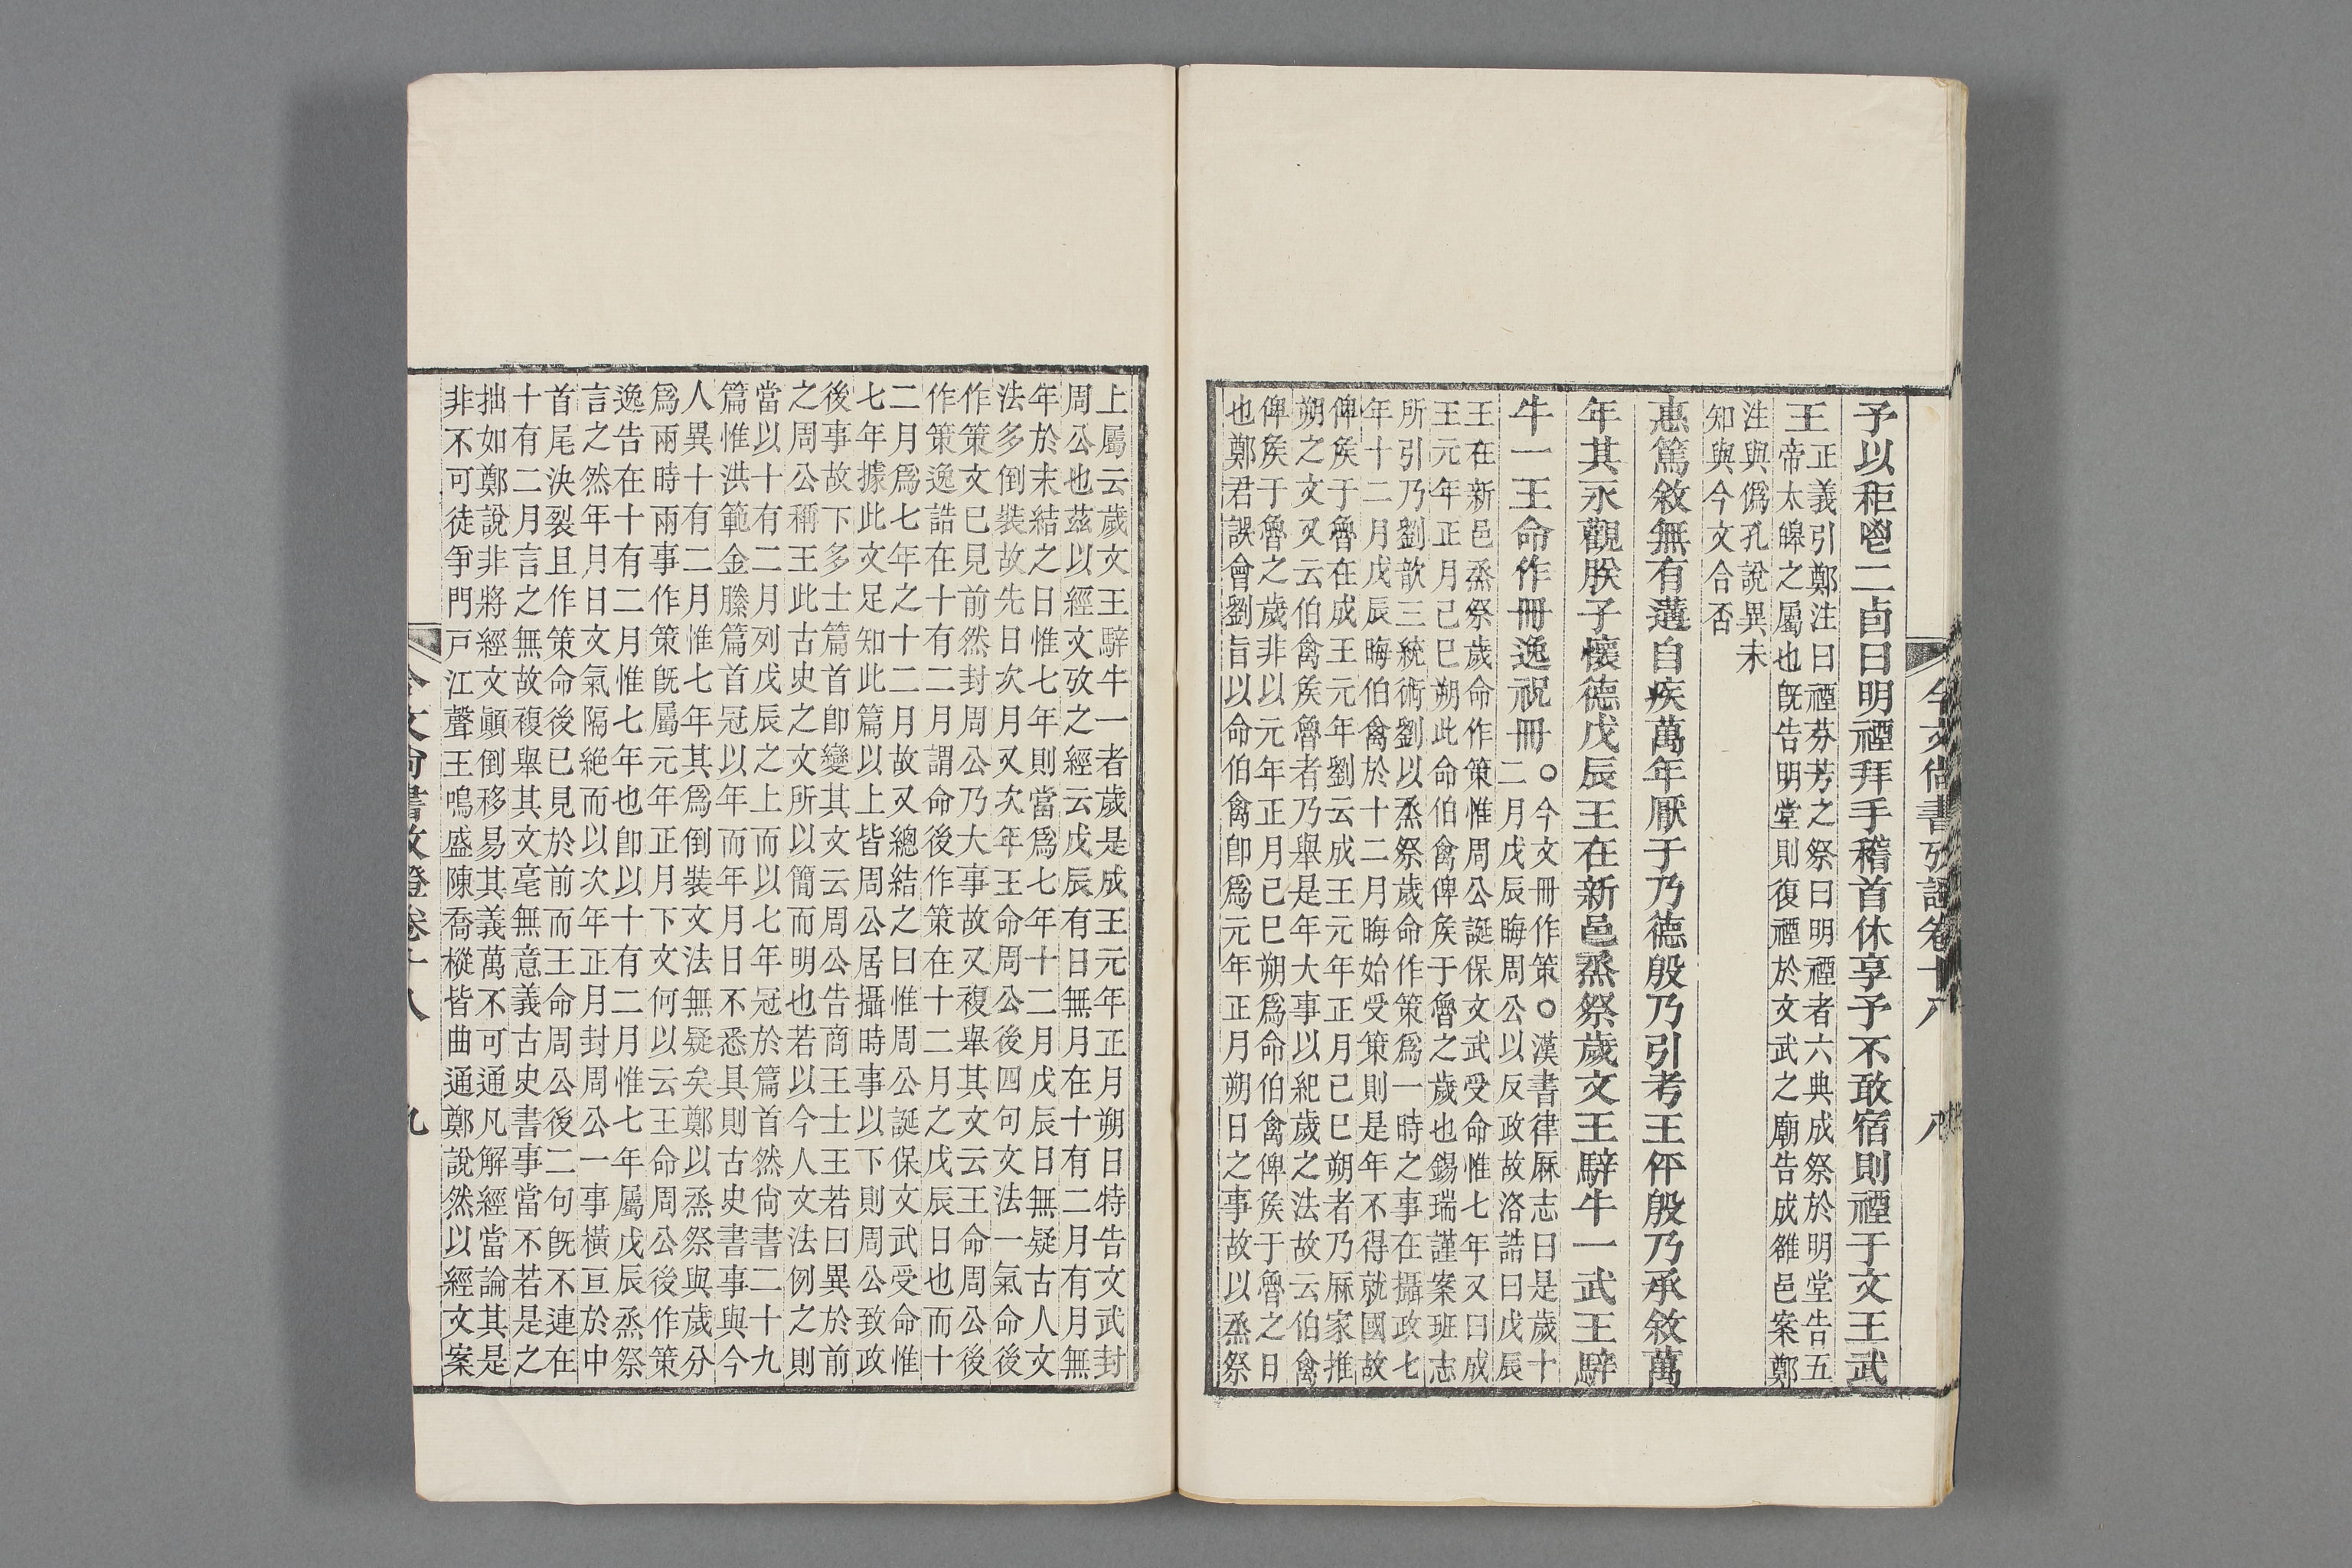 今文尚書攷證卷十八　八
予以秬鬯二卣曰明禋拜手稽首休享予不敢宿則禋于文王武
王
正義引鄭注曰禋芬芳之祭曰明禋者六典成祭於明堂告五
帝太皡之屬也旣告明堂則復禋於文武之廟告成雒邑案鄭
注與僞孔說異未
知與今文合否
惠篤敘無有遘自疾萬年厭于乃德殷乃引考王伻殷乃承敘萬
年其永觀朕子懷德戊辰王在新邑烝祭歲文王騂牛一武王騂
牛一王命作冊逸祝冊
○今文冊作策○漢書律厤志曰是歲十
二月戊辰晦周公以反政故洛誥曰戊辰
王在新邑烝祭歲命作策惟周公誕保文武受命惟七年又曰成
王元年正月己巳朔此命伯禽俾矦于魯之歲也錫瑞謹案班志
所引乃劉歆三統術劉以烝祭歲命作策爲一時之事在攝政七
年十二月戊辰晦伯禽於十二月晦始受策則是年不得就國故
俾矦于魯在成王元年劉云成王元年正月己巳朔者乃厤家推
朔之文又云伯禽矦魯者乃舉是年大事以紀歲之法故云伯禽
俾矦于魯之歲非以元年正月己巳朔爲命伯禽俾矦于魯之日
也鄭君誤會劉旨以命伯禽卽爲元年正月朔日之事故以烝祭
上屬云歲文王騂牛一者歲是成王元年正月朔日特告文武封
周公也茲以經文攷之經云戊辰有日無月在十有二月有月無
年於末結之曰惟七年則當爲七年十二月戊辰日無疑古人文
法多倒裝故先日次月又次年王命周公後四句文法一氣命後
作策文已見前然封周公乃大事故又複舉其文云王命周公後
作策逸誥在十有二月謂命後作策在十二月之戊辰日也而十
二月爲七年之十二月故又總結之曰惟周公誕保文武受命惟
七年據此文足知此篇以上皆周公居攝時事以下則周公致政
後事故下多士篇首卽變其文云周公告商王士王若曰異於前
之周公稱王此古史之文所以簡而明也若以今人文法例之則
當以十有二月列戊辰之上而以七年冠於篇首然尙書二十九
篇惟洪範金縢篇首冠以年而年月日不悉具則古史書事與今
人異十有二月惟七年其爲倒裝文法無疑矣鄭以烝祭與歲分
爲兩時兩事作策旣屬元年正月下文何以云王命周公後作策
逸告在十有二月惟七年也卽以十有二月惟七年屬戊辰烝祭
言之然年月日文氣隔絕而以次年正月封周公一事橫亘於中
首尾決裂且作策命後已見於前而王命周公後二句旣不連在
十有二月言之無故複舉其文毫無意義古史書事當不若是之
拙如鄭說非將經文顚倒移易其義萬不可通凡解經當論其是
非不可徒爭門戸江聲王鳴盛陳喬樅皆曲通鄭說然以經文案
今文尚書攷證卷十八　九